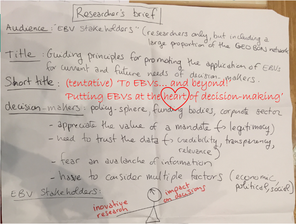 Researcher's brief
Audience "EBV Stakeholders" (researchers only, but including a
large proportion of the GEO BON network
Title: Guiding principles for promoting the application of EBVs
for current and future needs of decision-makers
Short title: (tentative) 'To EBVs... and beyond!'
'Putting EBVs at the heart of decision-making'
decision-makers: policy-sphere, funding bodies, corporate sector
- appreciate the value of a mandate (legitimacy)
- need to trust the data (credibility, transparency,
relevance)
- fear an avalanche of information
- have to consider multiple factors (economic,
political, social)
EBV Stakeholders:
inovative
research
impact
on decisions